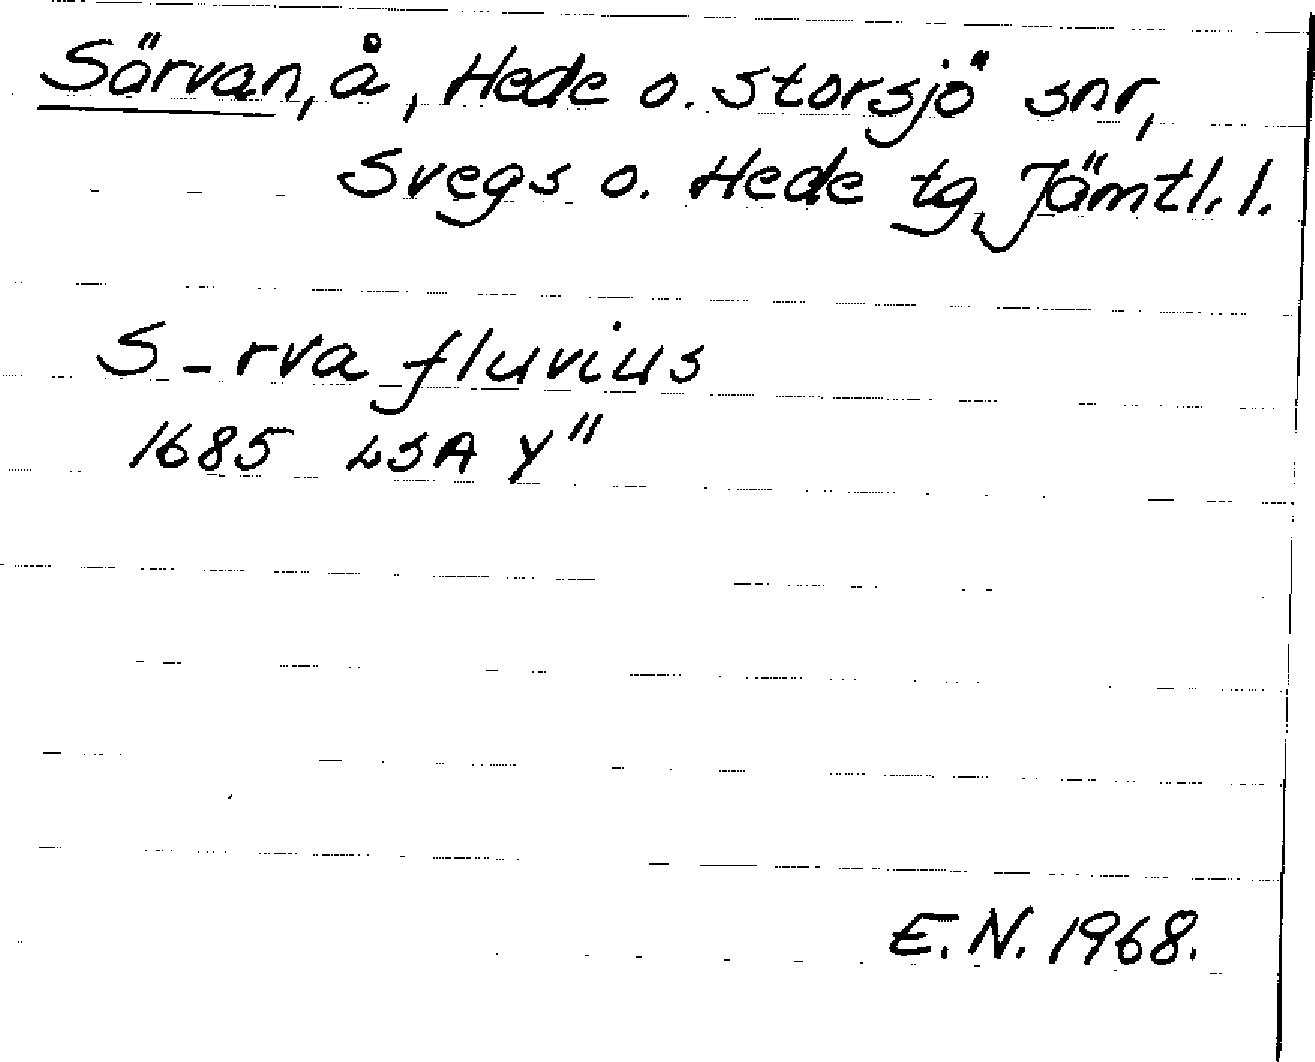 Särvan, å, Hede o. Storsjö snr,
Svegs o. Hede tg, Jämtl. l.
S-rva fluvius
1685 LSA Y"
E.N. 1968.